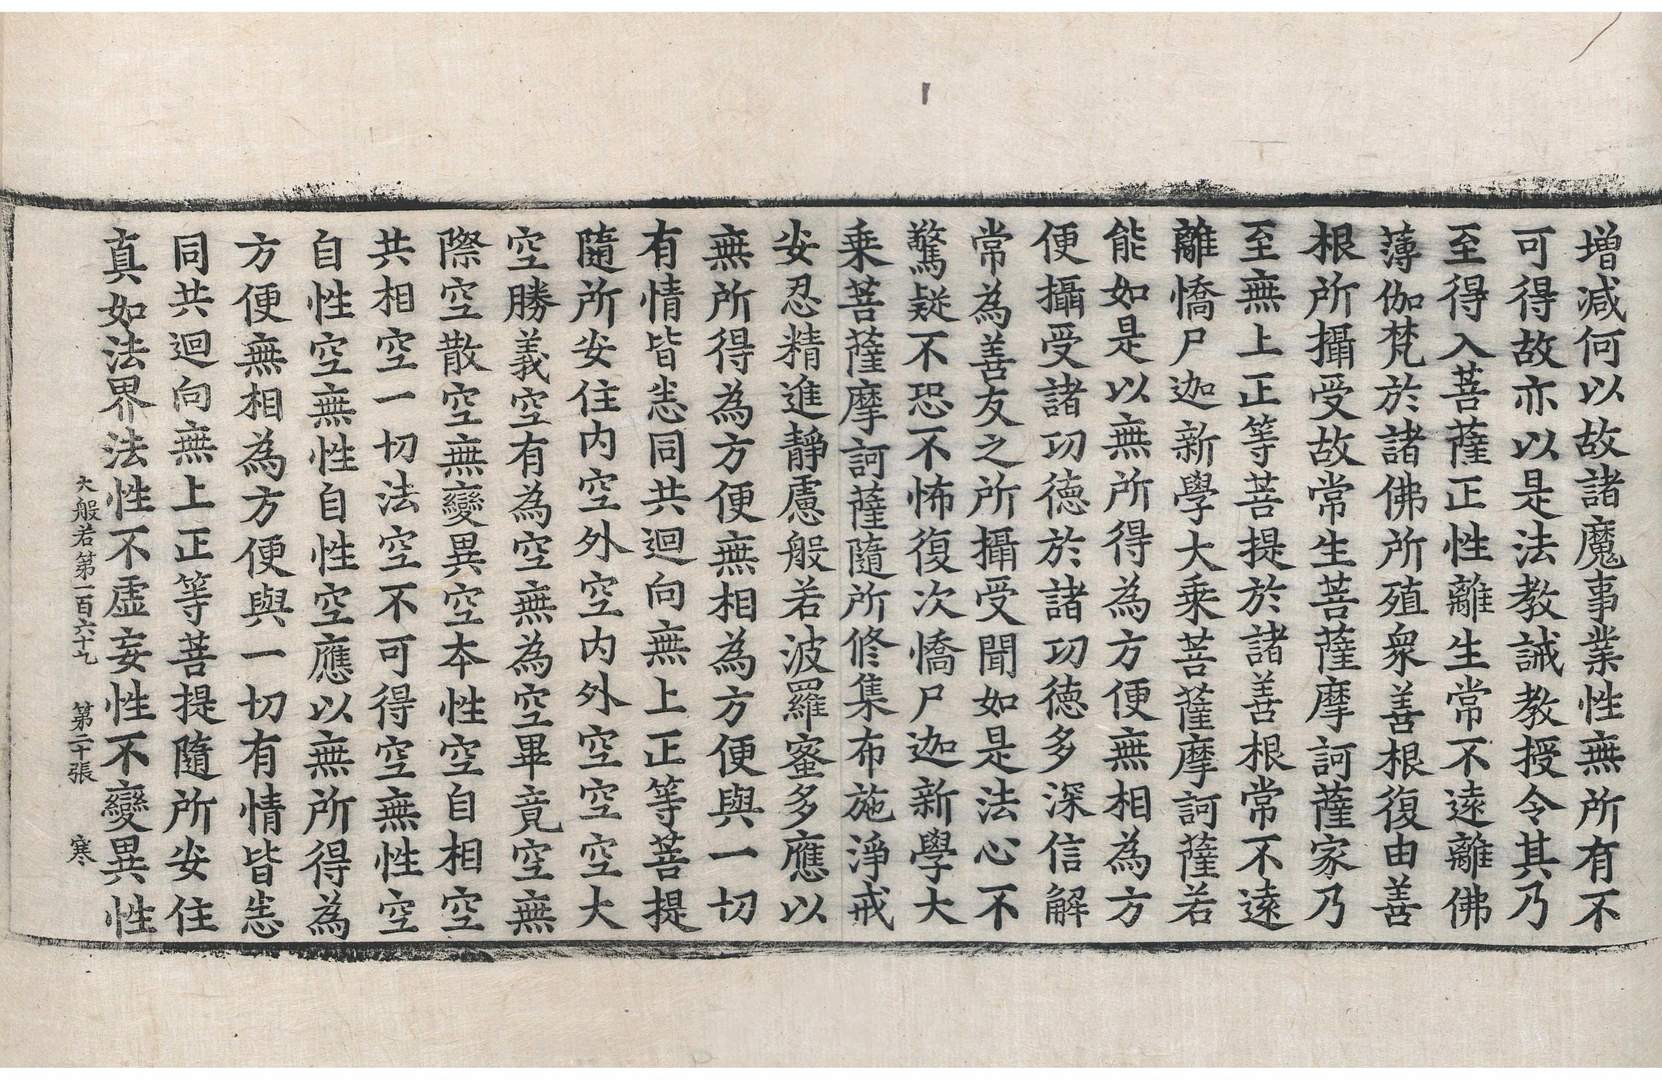 增減何以故諸魔事業性無所有不
可得故亦以是法教誡教授令其乃
至得入菩薩正性離生常不遠離佛
薄伽梵於諸佛所殖衆善根復由善
根所攝受故常生菩薩摩訶薩家乃
至無上正等菩提於諸善根常不遠
離憍尸迦新學大乘菩薩摩訶薩若
能如是以無所得為方便無相為方
便攝受諸功德於諸功德多深信解
常為善友之所攝受聞如是法心不
驚疑不恐不怖復次憍尸迦新學大
乘菩薩摩訶薩隨所修集布施淨戒
安忍精進靜慮般若波羅蜜多應以
無所得為方便無相為方便與一切
有情皆悉同共迴向無上正等菩提
隨所安住內空外空內外空空空大
空勝義空有為空無為空畢竟空無
際空散空無變異空本性空自相空
共相空一切法空不可得空無性空
自性空無性自性空應以無所得為
方便無相為方便與一切有情皆悉
同共迴向無上正等菩提隨所安住
真如法界法性不虛妄性不變異性
大般若第一百六十九　第二十張　寒